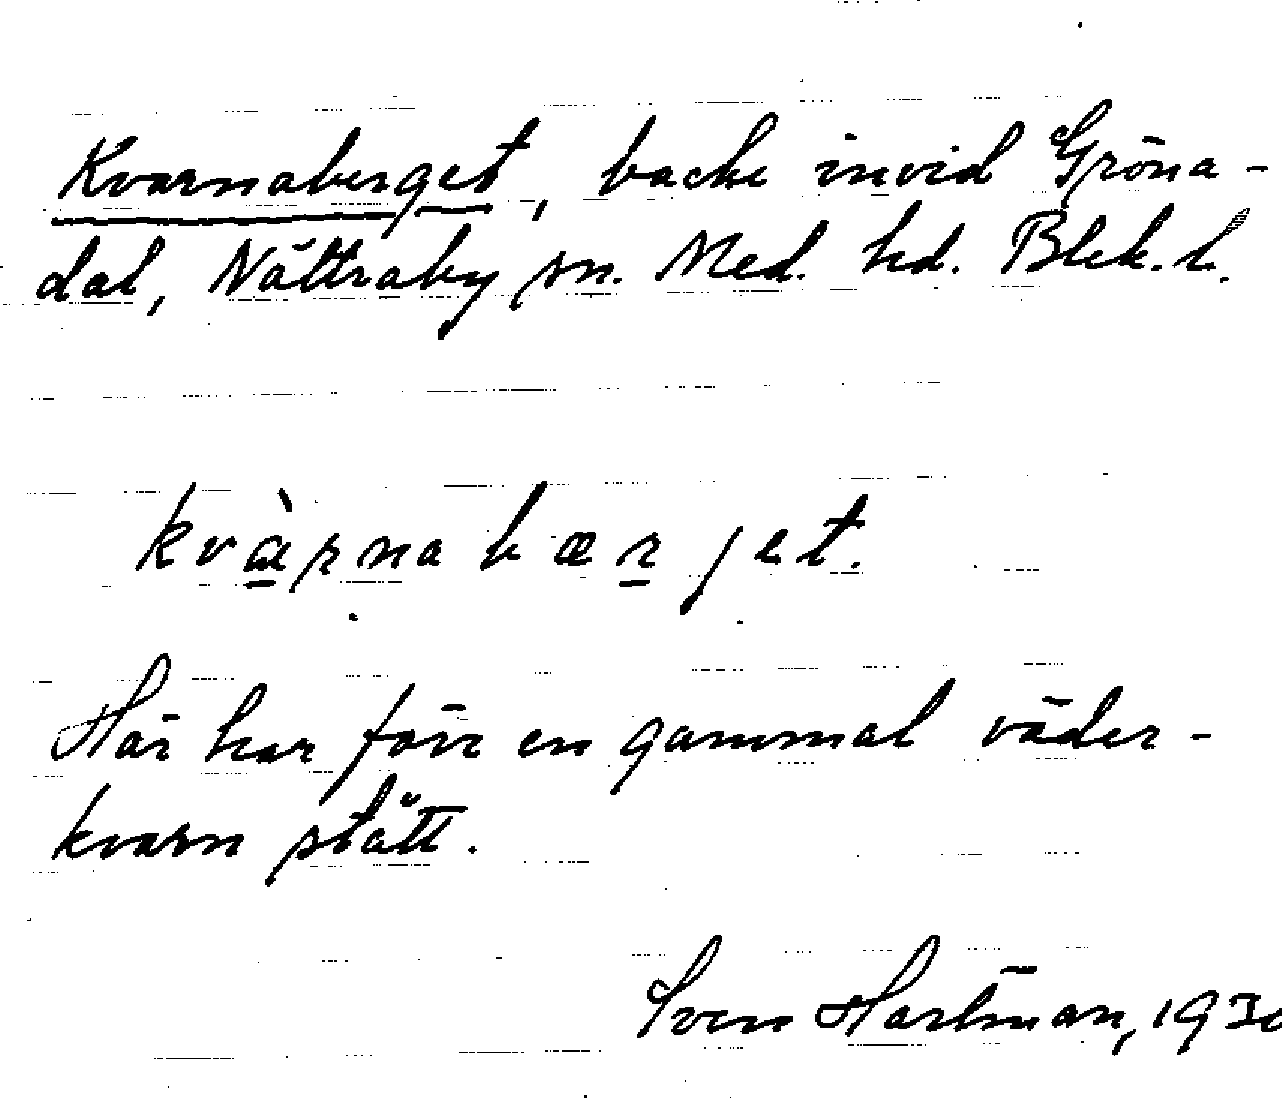 Kvarnaberget, backe invid Gröna-
dal, Nättraby sn. Med. hd. Blek. l.
kvàrnabærjet.
Här har förr en gammal väder-
kvarn stått.
Sven Hartman, 1930